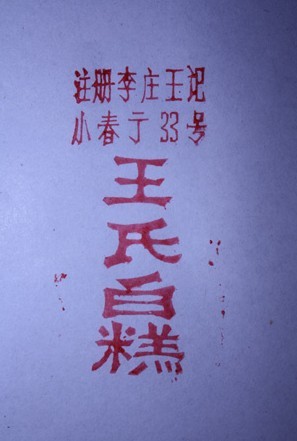 注册李庄王记
小春于33号
王氏白糕